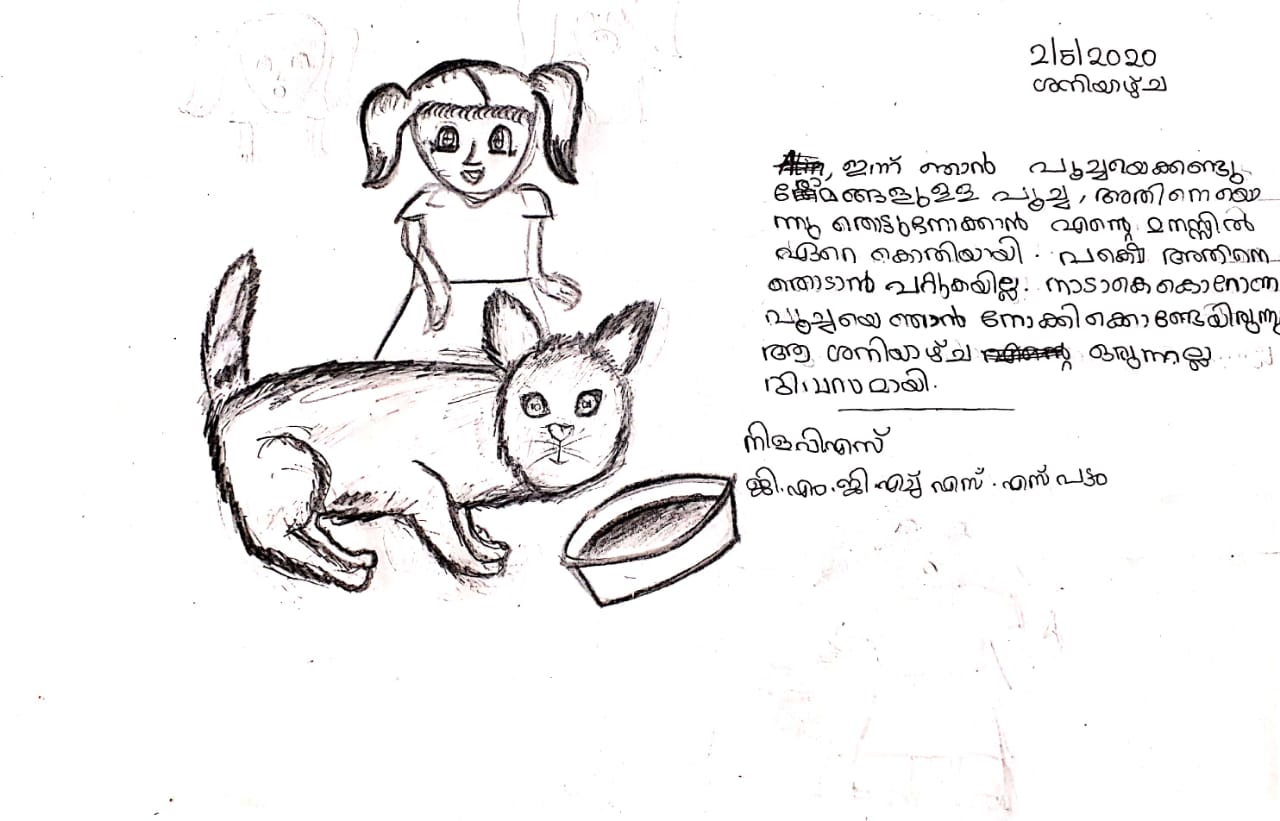 2/5/2020
ശനിയാഴ്ച
ഇന്ന് ഞാൻ പൂച്ചയെക്കണ്ടു
രോമങ്ങളുള്ള പൂച്ച, അതിനെയൊ
ന്നു തൊട്ടുനോക്കാൻ എന്റെ മനസ്സിൽ
ഏറെ കൊതിയായി. പക്ഷെ അതിനെ
തൊടാൻ പറ്റുകയില്ല. നാടാകെ കൊറോണ
പൂച്ചയെ ഞാൻ നോക്കിക്കൊണ്ടേയിരുന്നു
ആ ശനിയാഴ്ച ഒരു നല്ല
ദിവസമായി.
നിള വിഎസ്
ജി.എം.ജി എച്ച് എസ്.എസ് പട്ടം